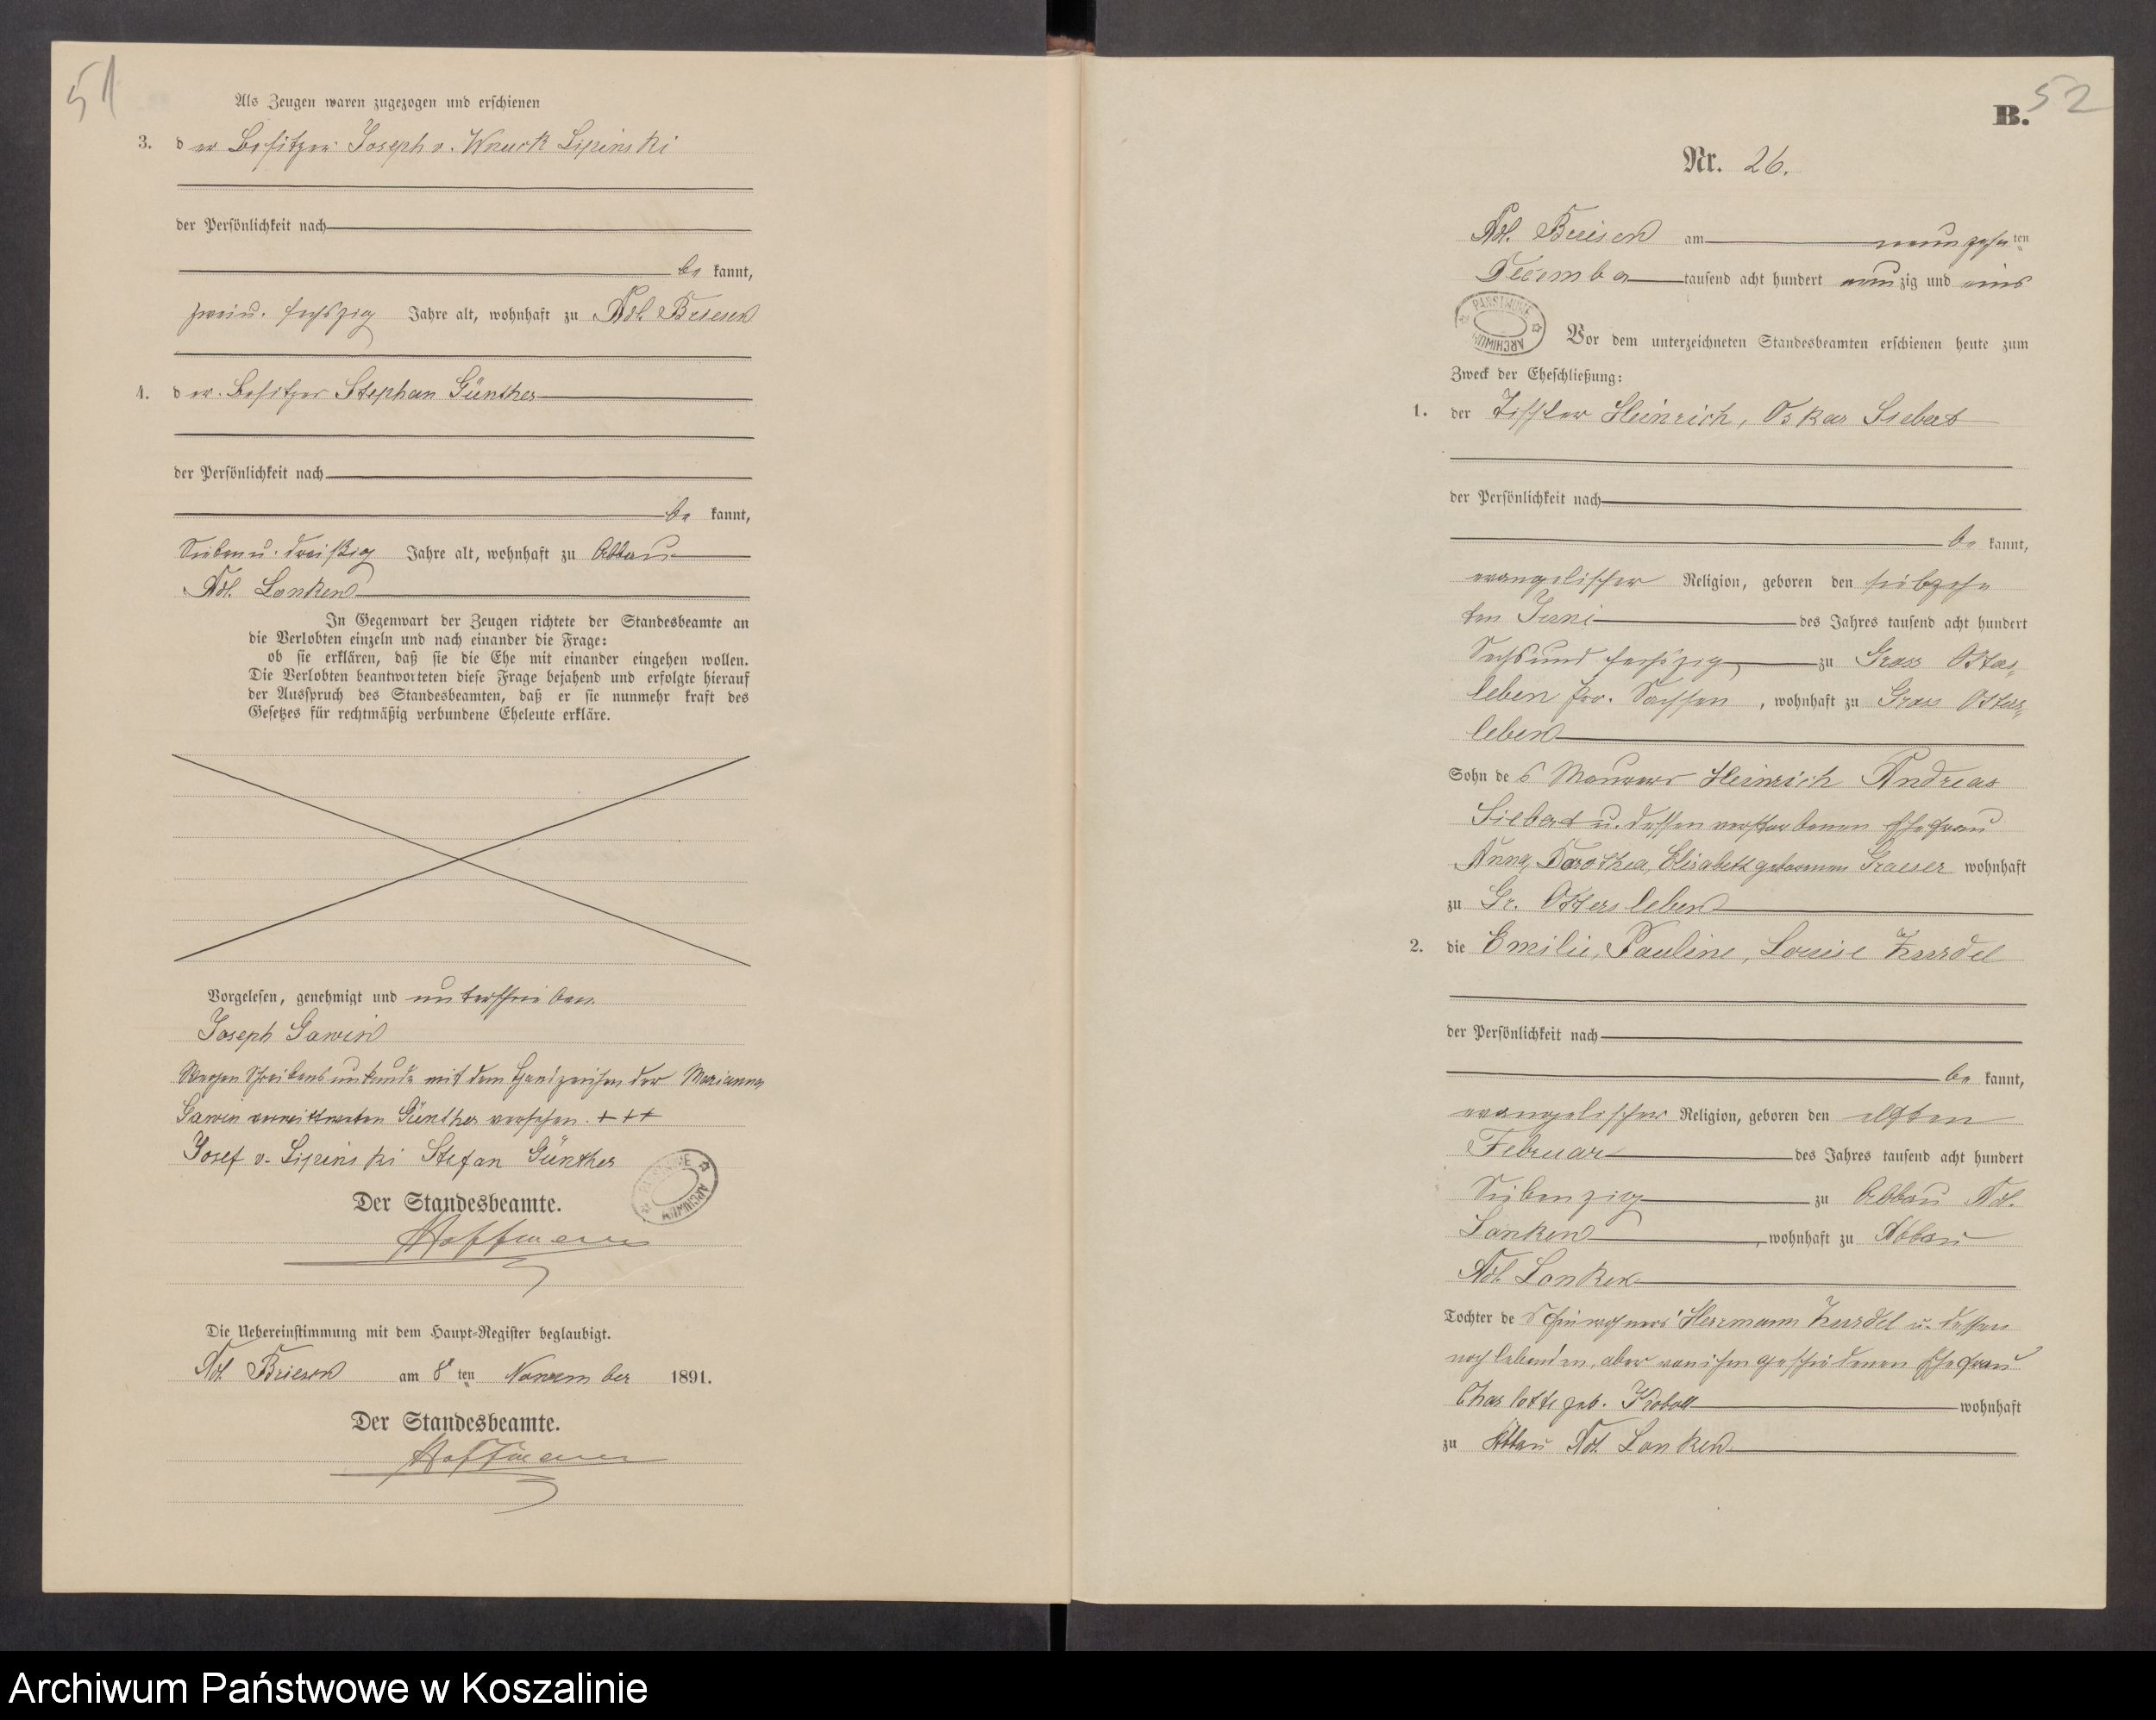 51
Als Zeugen waren zugezogen und erschienen
3. der Besitzer Joseph v. Wnuck Lipinski
der Persönlichkeit nach
be kannt,
zwei u. sechszig Jahre alt, wohnhaft zu Adl. Briesen
4. der Besitzer Stephan Günther
der Persönlichkeit nach
be kannt,
Sieben u. dreißig Jahre alt, wohnhaft zu Abbau
Adl. Lanken
In Gegenwart der Zeugen richtete der Standesbeamte an
die Verlobten einzeln und nach einander die Frage:
ob sie erklären, daß sie die Ehe mit einander eingehen wollen.
Die Verlobten beantworteten diese Frage bejahend und erfolgte hierauf
der Ausspruch des Standesbeamten, daß er sie nunmehr kraft des
Gesetzes für rechtmäßig verbundene Eheleute erkläre.
Vorgelesen, genehmigt und unterschrieben
Joseph Gawin
Wegen Schreibensunkunde mit dem Handzeichen der Marianna
Gawin verwittweten Günther versehen. +++
Josef v. Lipinski Stefan Günther
Der Standesbeamte.
Hoffmann
Die Uebereinstimmung mit dem Haupt-Register beglaubigt.
Adl. Briesen am 8 ten November 1891.
Der Standesbeamte.
Hoffmann
PAŃSTWOWE ARCHIWUM
52
B.
Nr. 26.
Adl. Briesen am neunzehn ten
December tausend acht hundert neunzig und eins
PAŃSTWOWE ARCHIWUM
Vor dem unterzeichneten Standesbeamten erschienen heute zum
Zweck der Eheschließung:
1. der Tischler Heinrich, Oskar Siebert
der Persönlichkeit nach
be kannt,
evangelischer Religion, geboren den siebzehn
ten Juni des Jahres tausend acht hundert
Sechs und sechszig zu Gross Otters
leben Prov. Sachsen, wohnhaft zu Gross Otters
leben
Sohn des Maurers Heinrich Andreas
Siebert u. dessen verstorbenen Ehefrau
Anna, Dorothea, Elisabeth geborenen Graeser wohnhaft
zu Gr. Ottersleben
2. die Emilie, Pauline, Louise
der Persönlichkeit nach
be kannt,
evangelischer Religion, geboren den elften
Februar des Jahres tausend acht hundert
Siebenzig zu Abbau Adl.
Lanken, wohnhaft zu Abbau
Adl. Lanken
Tochter des Einwohners Herrmann u. dessen
noch lebenden, aber von ihm geschiedenen Ehefrau
Charlotte geb. wohnhaft
zu Abbau Adl. Lanken
Archiwum Państwowe w Koszalinie